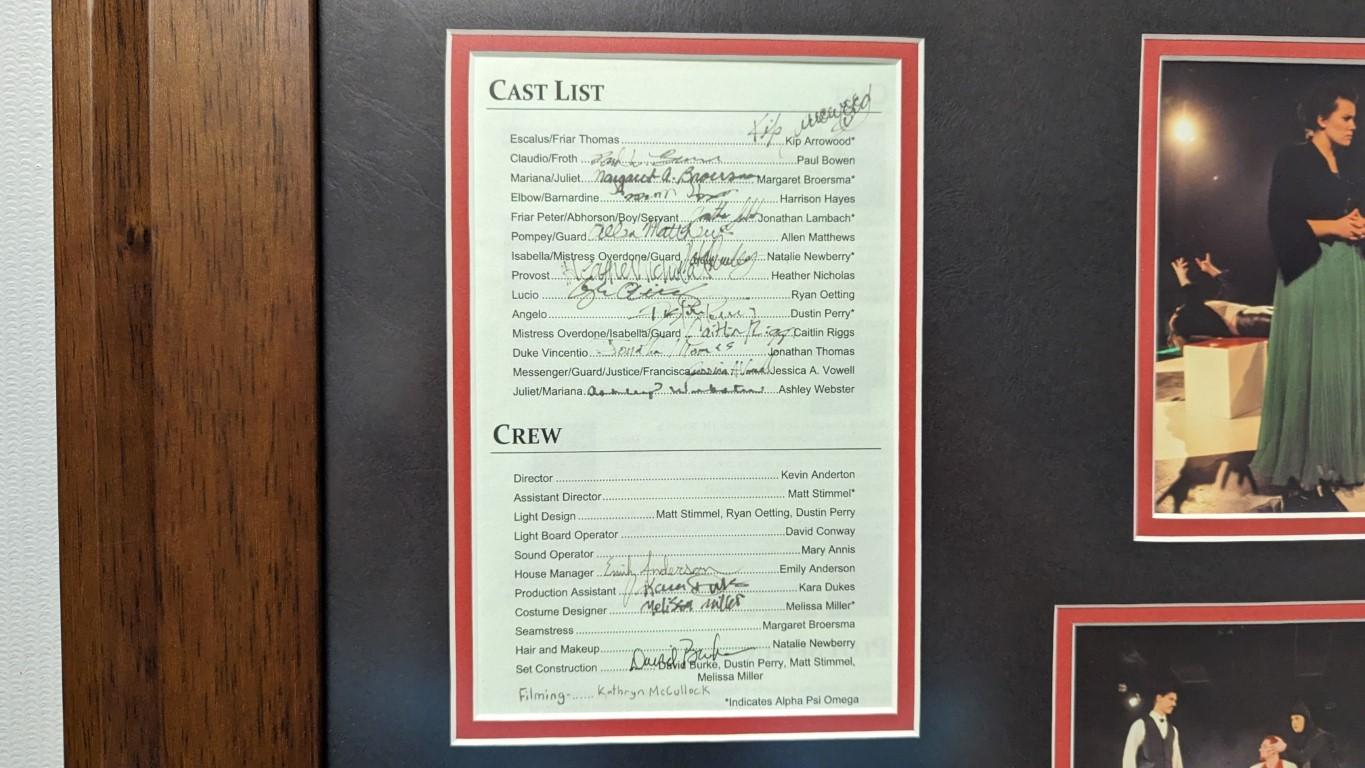 CAST LIST
Kip Arrowood
Escalus/Friar Thomas Kip Arrowood*
Claudio/Froth Paul Bowen
Mariana/Juliet Margaret A. Broersma Margaret Broersma*
Elbow/Barnardine Harrison Hayes
Friar Peter/Abhorson/Boy/Servant Jonathan Lambach*
Pompey/Guard Allen Matthews Allen Matthews
Isabella/Mistress Overdone/Guard Natalie Newberry*
Provost Heather Nicholas Heather Nicholas
Lucio Ryan Oetting
Angelo Dustin Perry*
Mistress Overdone/Isabella/Guard Caitlin Riggs Caitlin Riggs
Duke Vincentio Jonathan Thomas
Messenger/Guard/Justice/Francisca Jessica A. Vowell
Juliet/Mariana Ashley Webster Ashley Webster
CREW
Director Kevin Anderton
Assistant Director Matt Stimmel*
Light Design Matt Stimmel, Ryan Oetting, Dustin Perry
Light Board Operator David Conway
Sound Operator Mary Annis
House Manager Emily Anderson Emily Anderson
Production Assistant Kara Dukes Kara Dukes
Costume Designer Melissa Miller Melissa Miller*
Seamstress Margaret Broersma
Hair and Makeup Natalie Newberry
Set Construction David Burke David Burke, Dustin Perry, Matt Stimmel,
Melissa Miller
Filming-...... Kathryn McCullock
*Indicates Alpha Psi Omega